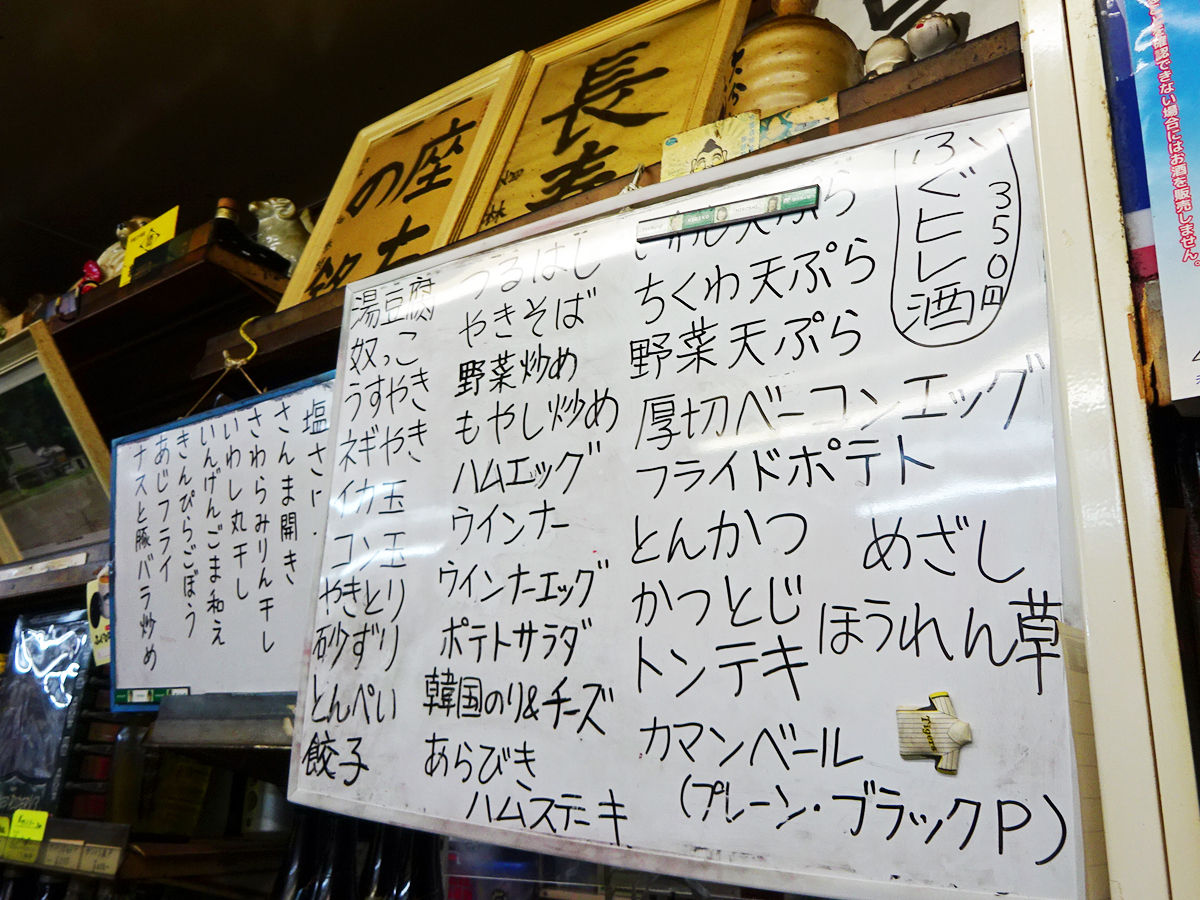 ふぐヒレ酒
350円
湯豆腐
奴っこ
うすやき
ネギやき
イカ玉
コン玉
やきとり
砂ずり
とんぺい
餃子
つるはし
やきそば
野菜炒め
もやし炒め
ハムエッグ
ウインナー
ウインナーエッグ
ポテトサラダ
韓国のり&チーズ
あらびき
ハムステーキ
天ぷら
ちくわ天ぷら
野菜天ぷら
厚切ベーコンエッグ
フライドポテト
とんかつ
かつとじ
トンテキ
カマンベール
(プレーン・ブラックP)
めざし
ほうれん草
Tigers
塩さ
さんま開き
さわらみりん干し
いわし丸干し
いんげんごま和え
きんぴらごぼう
あじフライ
ナスと豚バラ炒め
長寿
の座右銘
を確認できない場合にはお酒を販売しません。